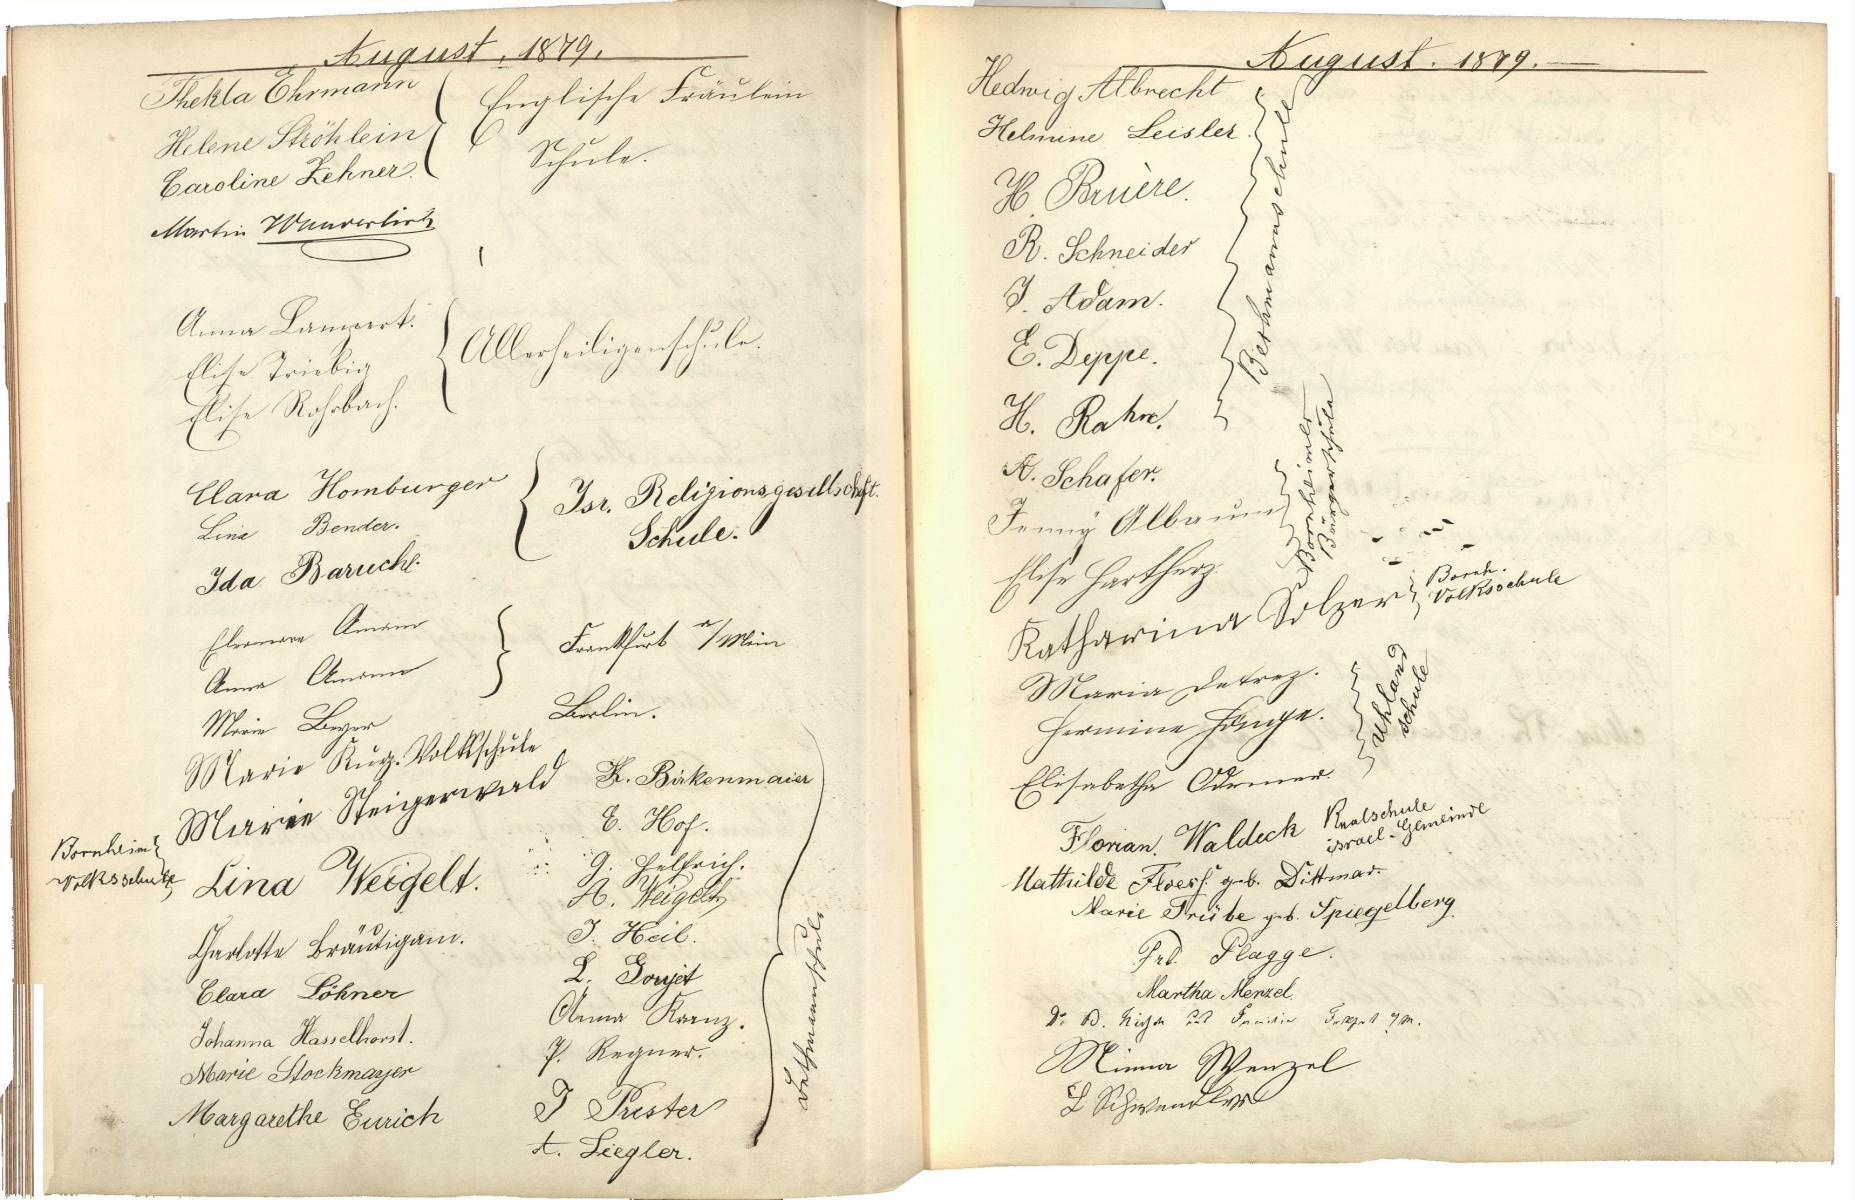 August. 1879.
Thekla Ehrmann
Helene Ströhlein
Caroline Zehner.
Englische Fräulein
Schule.
Martin Wunderlich
Anna Lampert.
Elise Triebig
Elise Rohrbach.
Allerheiligenschule.
Clara Homburger
Lina Bender.
Ida Baruch.
Isr. Religionsgesellschaft.
Schule.
Eleonore Amann
Anna Amann
Frankfurt a/Main
Marie Beyer
Berlin.
Marie Kurz. Volksschule
Marie Steigerwald
Bornheim
Volksschule
Lina Weigelt.
Charlotte Bräutigam.
Clara Löhner
Johanna Hasselhorst.
Marie Stockmayer
Margarethe Eurich
K. Birkenmaier
E. Hof.
G. Helfrich.
A. Weigelt
J. Heil.
L.
Anna
P. Regner.
J
A. Ziegler.
Bethmannschule
August. 1879.
Hedwig Albrecht
Helmine Leisler.
H. Bruère.
R. Schneider
J. Adam.
E. Deppe.
H. Rahn.
Bethmannschule
A. Schafer.
Jenny Albaum
Elise Hartherz.
Bornheimer
Bürgerschule
Katharina Solzer
Bornh.
Volksschule
Maria Detrez.
Hermine
Elisabetha
Uhland
schule
Florian. Waldeck Realschule
israel. Gemeinde
Mathilde Floess geb. Dittmar.
Marie Trübe geb. Spiegelberg
Frd. Plagge.
Martha Menzel.
Dr. B.
Minna Wenzel
L Schwendler